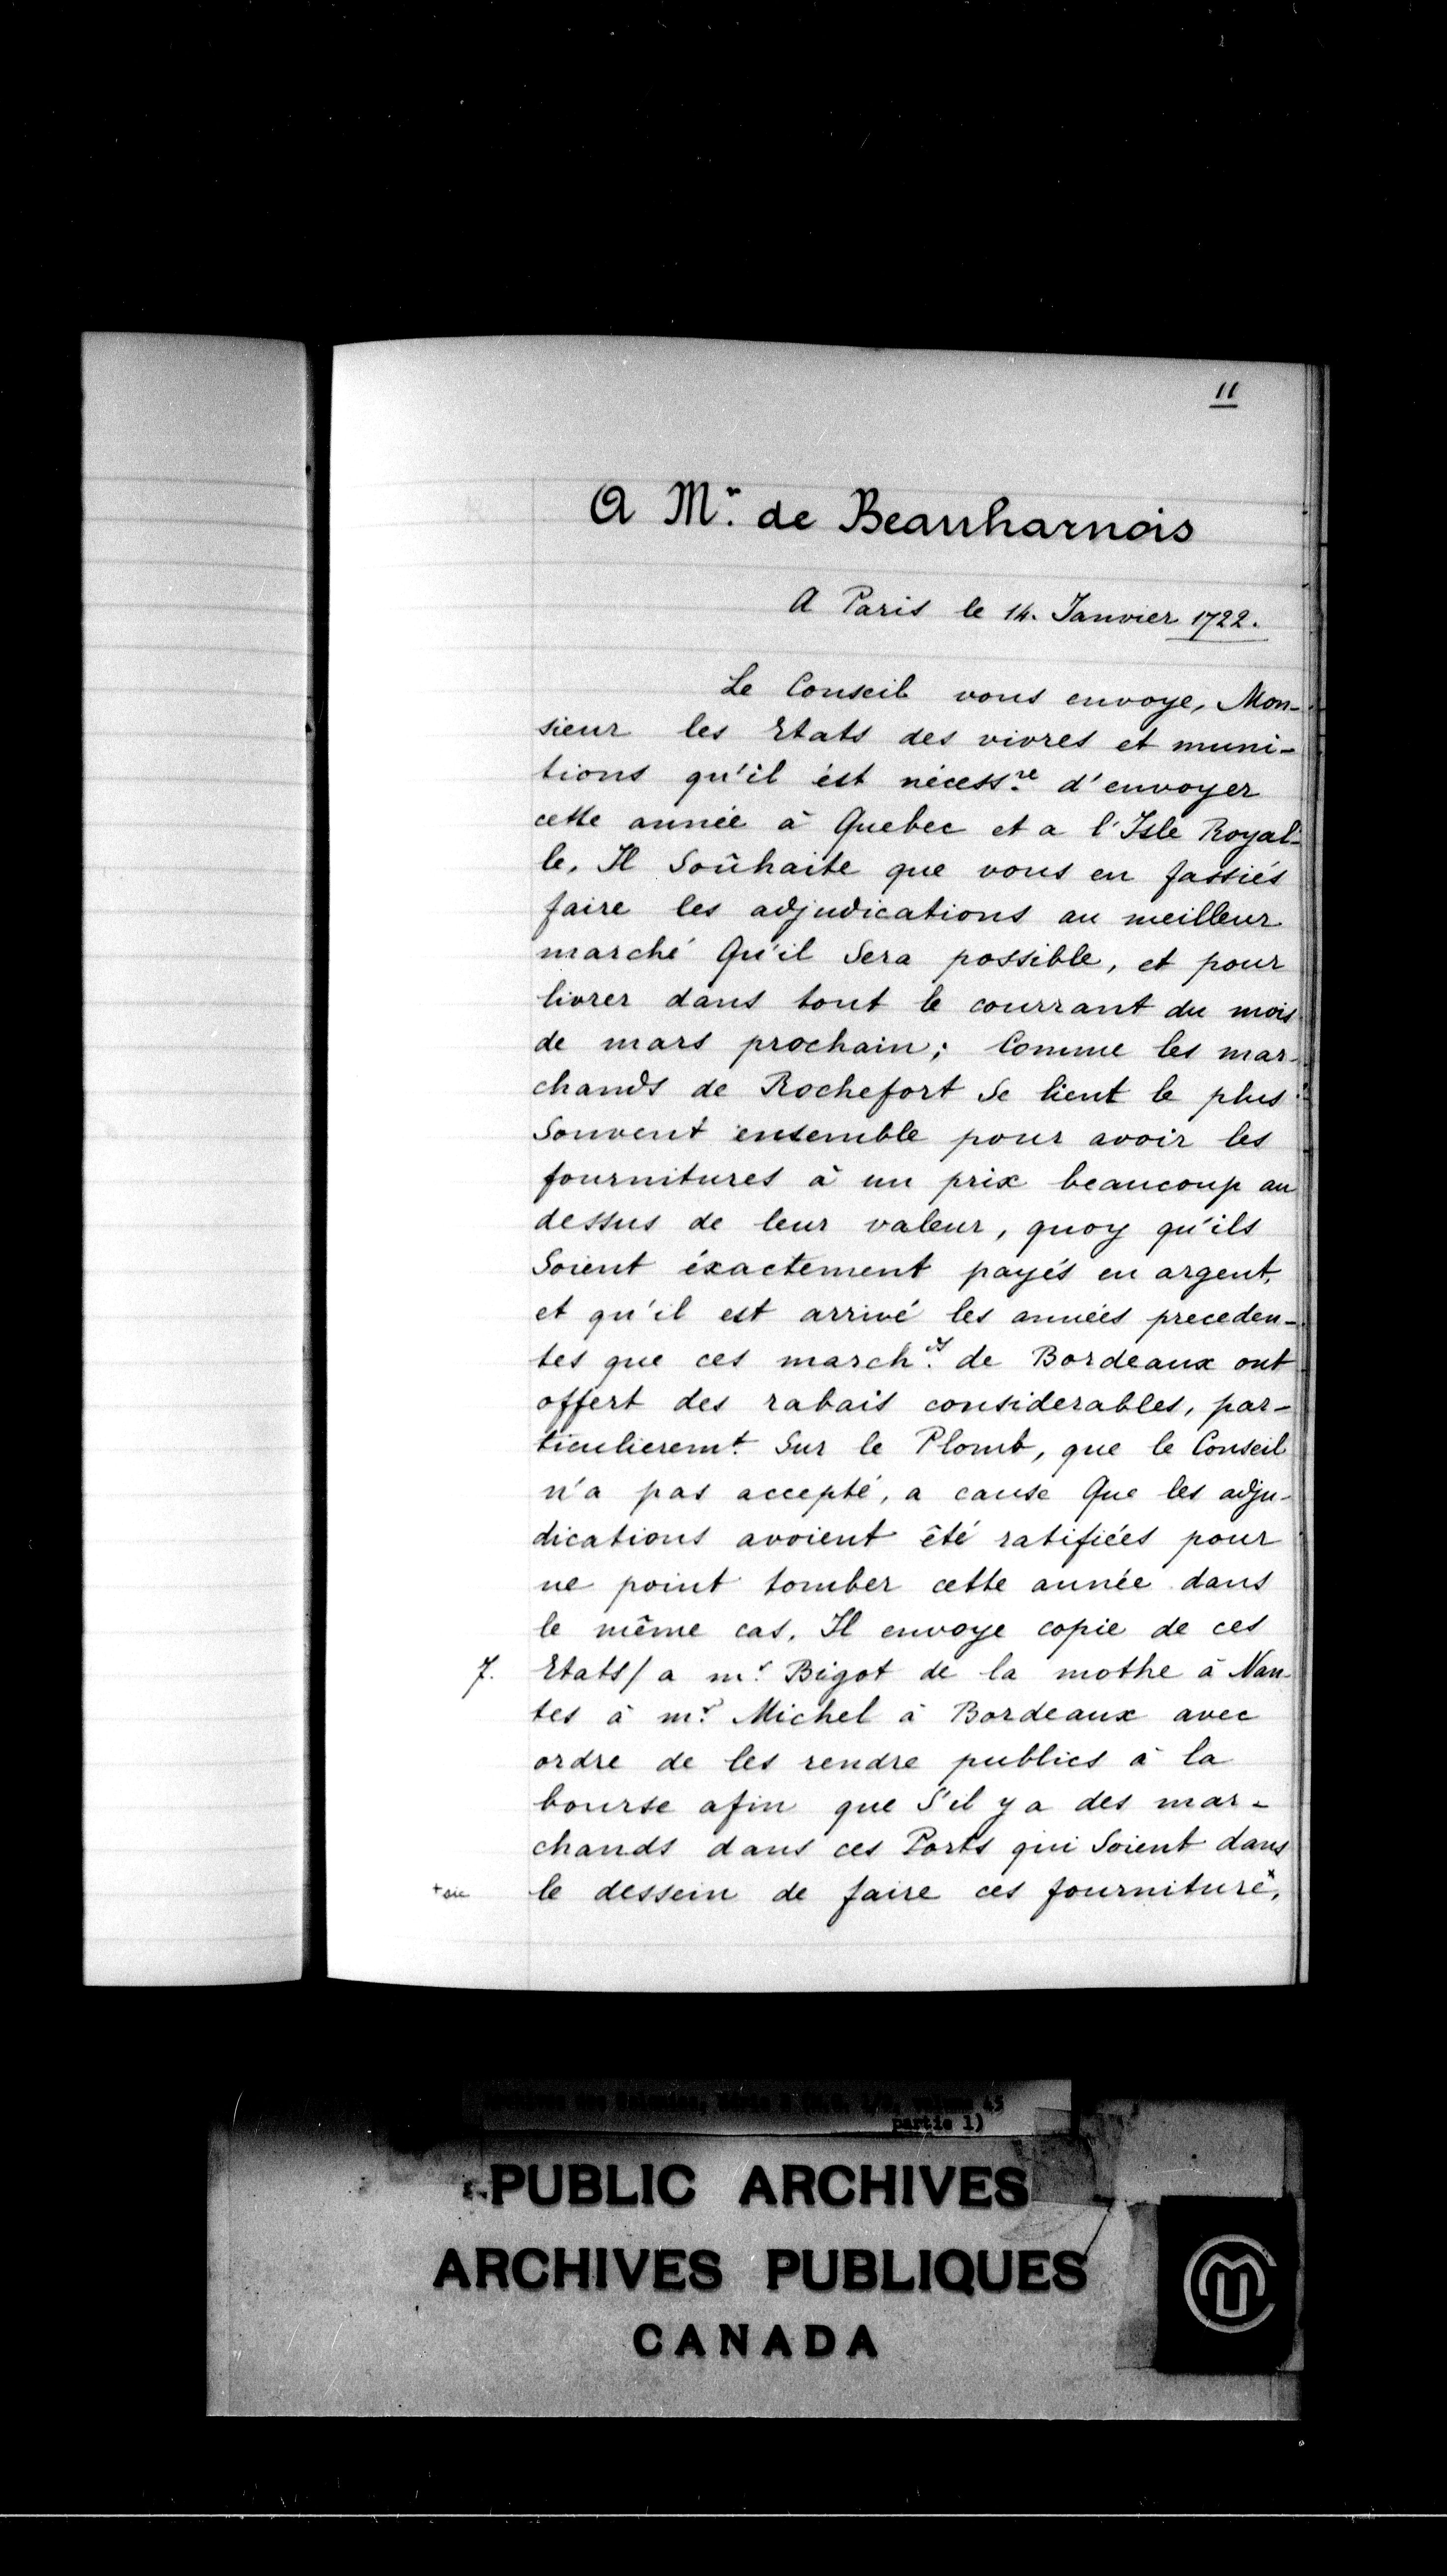 11
A Mr. de Beauharnois
A Paris le 14. Janvier 1722.
Le Conseil vous envoye, Mon-
sieur les Etats des vivres et muni-
tions qu'il ést nécessre. d'envoyer
cette année à Quebec et a l'Isle Royal-
le. Il Soûhaite que vous en fassiés
faire les adjudications au meilleur
marché Qu'il Sera possible, et pour
livrer dans tout le courrant du mois
de mars prochain; Comme les mar-
chands de Rochefort Se lient le plus
Souvent ensemble pour avoir les
fournitures à un prix beaucoup au
dessus de leur valeur, quoy qu'ils
Soient éxactement payés en argent,
et qu'il est arrivé les années preceden-
tes que ces marchds. de Bordeaux ont
offert des rabais considerables, par-
ticulieremt. Sur le Plomb, que le Conseil
n'a pas accepté, a cause Que les adju-
dications avoient été ratifiées pour
ne point tomber cette année dans
le même cas. Il envoye copie de ces
7. Etats/ a mr. Bigot de la mothe à Nan-
tes à mr. Michel à Bordeaux avec
ordre de les rendre publics à la
bourse afin que S'il y a des mar-
chands dans ces Ports qui Soient dans
+ sic le dessein de faire ces fourniture+,
45
partie 1)
PUBLIC ARCHIVES
ARCHIVES PUBLIQUES
CANADA